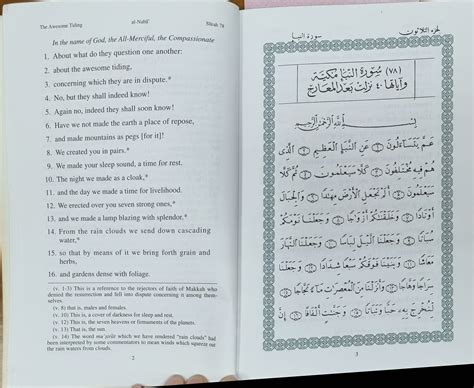 The Awesome Tiding al-Naba' Sūrah 78
In the name of God, the All-Merciful, the Compassionate
1. About what do they question one another:
2. about the awesome tiding,
3. concerning which they are in dispute.*
4. No, but they shall indeed know!
5. Again no, indeed they shall soon know!
6. Have we not made the earth a place of repose,
7. and made mountains as pegs [for it]!
8. We created you in pairs.*
9. We made your sleep sound, a time for rest.
10. The night we made as a cloak,*
11. and the day we made a time for livelihood.
12. We erected over you seven strong ones,*
13. and we made a lamp blazing with splendor,*
14. From the rain clouds we sent down cascading
water,*
15. so that by means of it we bring forth grain and
herbs,
16. and gardens dense with foliage.
(v. 1-3) This is a reference to the rejectors of faith of Makkah who
denied the resurrection and fell into dispute concerning it among them-
selves.
(v. 8) that is, males and females.
(v. 10) This is, a cover of darkness for sleep and rest.
(v. 12) This is, the seven heavens or firmaments of the planets.
(v. 13) That is, the sun.
(v. 14) The word ma'ṣirāt which we have rendered "rain clouds" had
been interpreted by some commentators to mean winds which squeeze out
the rain from clouds.
2
الجزء الثلاثون سورة النبأ
(٧٨) سُورَة النبَإ مَكيَّة
وآياتها ٤٠ نزلت بَعْد المعَارج
بِسْمِ اللَّهِ الرَّحْمَٰنِ الرَّحِيمِ
عَمَّ يَتَسَاءَلُونَ ١ عَنِ النَّبَإِ الْعَظِيمِ ٢ الَّذِي
هُمْ فِيهِ مُخْتَلِفُونَ ٣ كَلَّا سَيَعْلَمُونَ ٤ ثُمَّ كَلَّا
سَيَعْلَمُونَ ٥ أَلَمْ نَجْعَلِ الْأَرْضَ مِهَادًا ٦ وَالْجِبَالَ
أَوْتَادًا ٧ وَخَلَقْنَاكُمْ أَزْوَاجًا ٨ وَجَعَلْنَا نَوْمَكُمْ
سُبَاتًا ٩ وَجَعَلْنَا اللَّيْلَ لِبَاسًا ١٠ وَجَعَلْنَا
النَّهَارَ مَعَاشًا ١١ وَبَنَيْنَا فَوْقَكُمْ سَبْعًا شِدَادًا ١٢ وَجَعَلْنَا
سِرَاجًا وَهَّاجًا ١٣ وَأَنْزَلْنَا مِنَ الْمُعْصِرَاتِ مَاءً ثَجَّاجًا ١٤
لِنُخْرِجَ بِهِ حَبًّا وَنَبَاتًا ١٥ وَجَنَّاتٍ أَلْفَافًا ١٦ إِنَّ
3